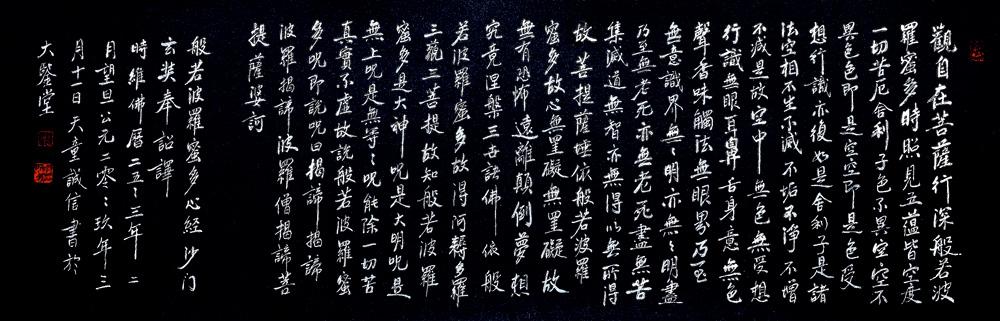 觀自在菩薩行深般若波
羅蜜多時照見五蘊皆空度
一切苦厄舍利子色不異空空不
異色色即是空空即是色受
想行識亦復如是舍利子是諸
法空相不生不滅不垢不淨不增
不减是故空中無色無受想
行識無眼耳鼻舌身意無色
聲香味觸法無眼界乃至
無意識界無無明亦無無明盡
乃至無老死亦無老死盡無苦
集滅道無智亦無得以無所得
故菩提薩埵依般若波羅
蜜多故心無罣礙無罣礙故
無有恐怖遠離顛倒夢想
究竟涅槃三世諸佛依般
若波羅蜜多故得阿耨多羅
三藐三菩提故知般若波羅
蜜多是大神呪是大明呪是
無上呪是無等等呪能除一切苦
真實不虛故說般若波羅蜜
多呪即說呪曰揭諦揭諦
波羅揭諦波羅僧揭諦菩
提薩婆訶
般若波羅蜜多心經沙门
玄奘奉詔譯
時維佛曆二五々三年二
月望旦公元二零々玖年三
月十一日天童誠信書於
大㲀堂